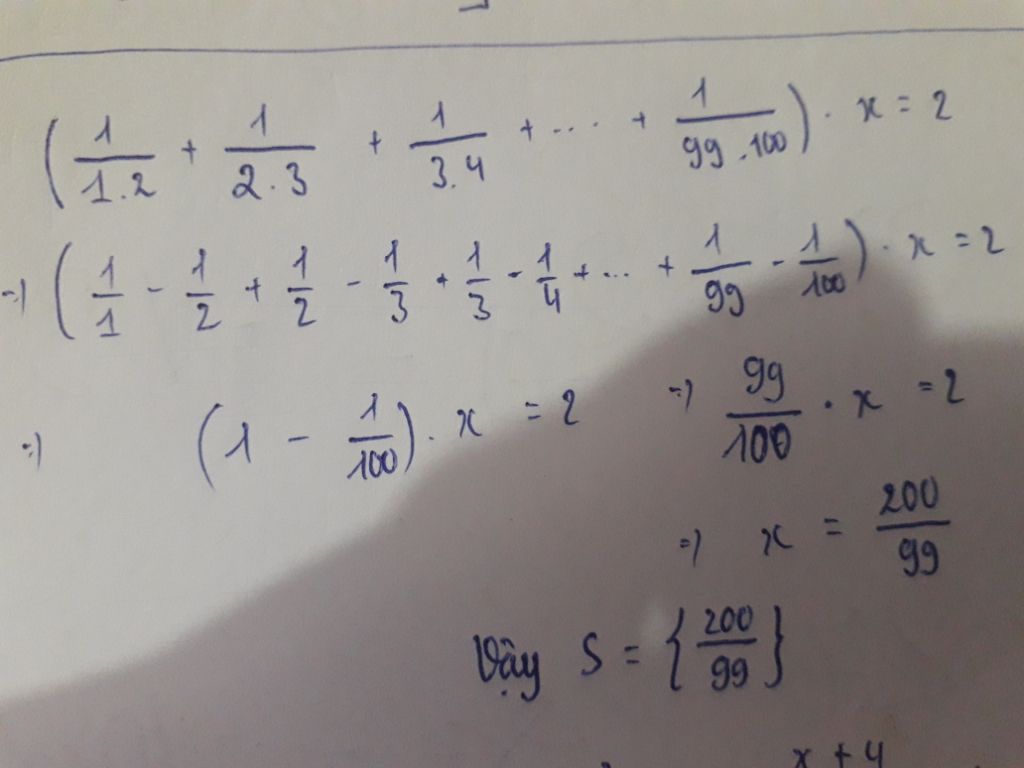 (1/1.2 + 1/2.3 + 1/3.4 + ... + 1/99.100) . x = 2
=> (1/1 - 1/2 + 1/2 - 1/3 + 1/3 - 1/4 + ... + 1/99 - 1/100) . x = 2
=> (1 - 1/100) . x = 2 => 99/100 . x = 2
=> x = 200/99
Vậy S = {200/99}
x + 4